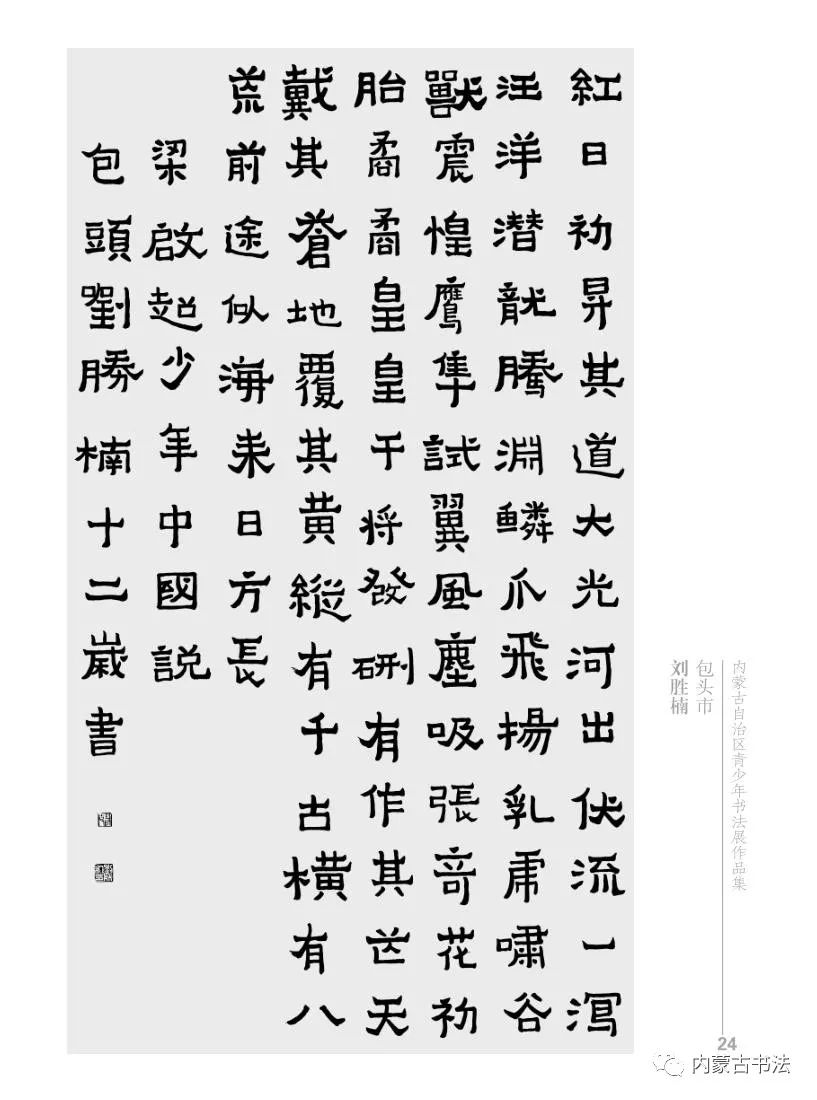 紅日初昇其道大光河出伏流一瀉
汪洋潜龍騰淵鱗爪飛揚乳虎嘯谷
獸震惶鷹隼試翼風塵吸張奇花初
胎矞矞皇皇干将發硎有作其芒天
戴其蒼地覆其黄縱有千古橫有八
荒前途似海来日方長
梁啟超少年中國説
包頭劉勝楠十二歲書
包头市
刘胜楠
内蒙古自治区青少年书法展作品集
24
内蒙古书法